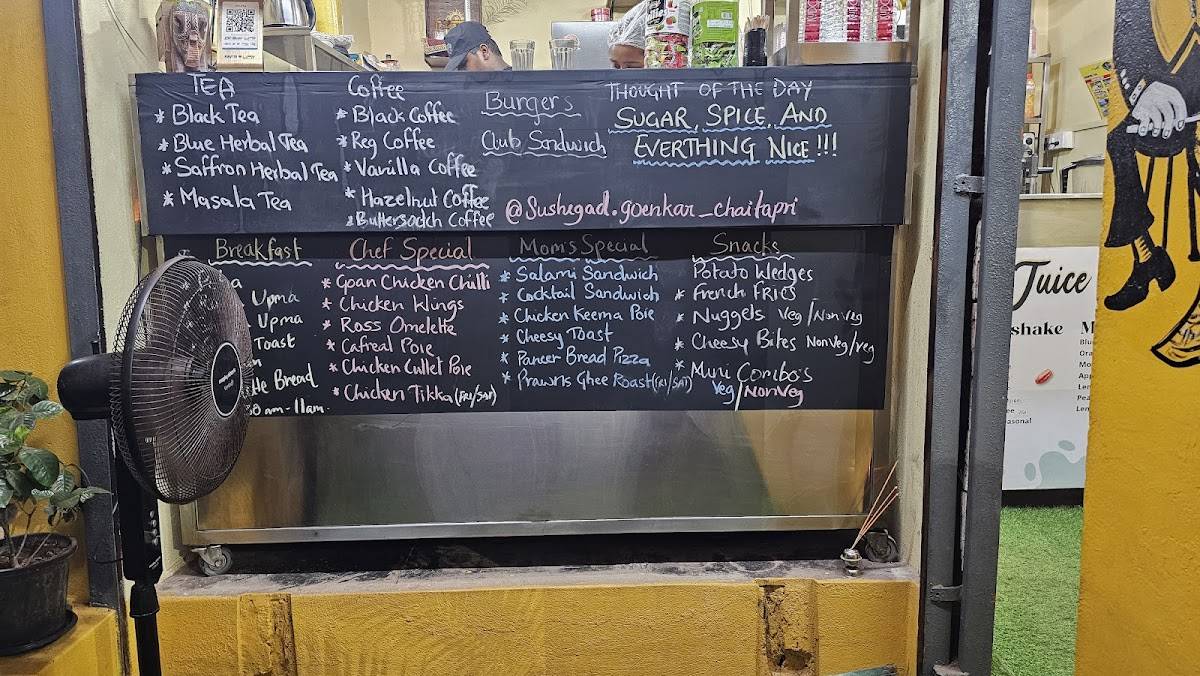 TEA
* Black Tea
* Blue Herbal Tea
* Saffron Herbal Tea
* Masala Tea
Coffee
* Black Coffee
* Reg Coffee
* Vanilla Coffee
* Hazelnut Coffee
* Butterscotch Coffee
Burgers
Club Sandwich
THOUGHT OF THE DAY
SUGAR, SPICE, AND
EVERTHING NICE!!!
@Sushegad.goenkar_chaitapri
Breakfast
Upma
Upma
Toast
Bread
am-11am
Chef Special
* Goan Chicken Chilli
* Chicken Wings
* Ross Omelette
* Cafreal Poie
* Chicken Cutlet Poie
* Chicken Tikka (FRI/SAT)
Mom's Special
* Salami Sandwich
* Cocktail Sandwich
* Chicken Keema Poie
* Cheesy Toast
* Paneer Bread Pizza
* Prawns Ghee Roast (FRI/SAT)
Snacks
Potato Wedges
* French FRIES
* Nuggets Veg/Non Veg
* Cheesy Bites Non Veg/veg
* Mini Combo's
Veg/Non Veg
Juice
shake